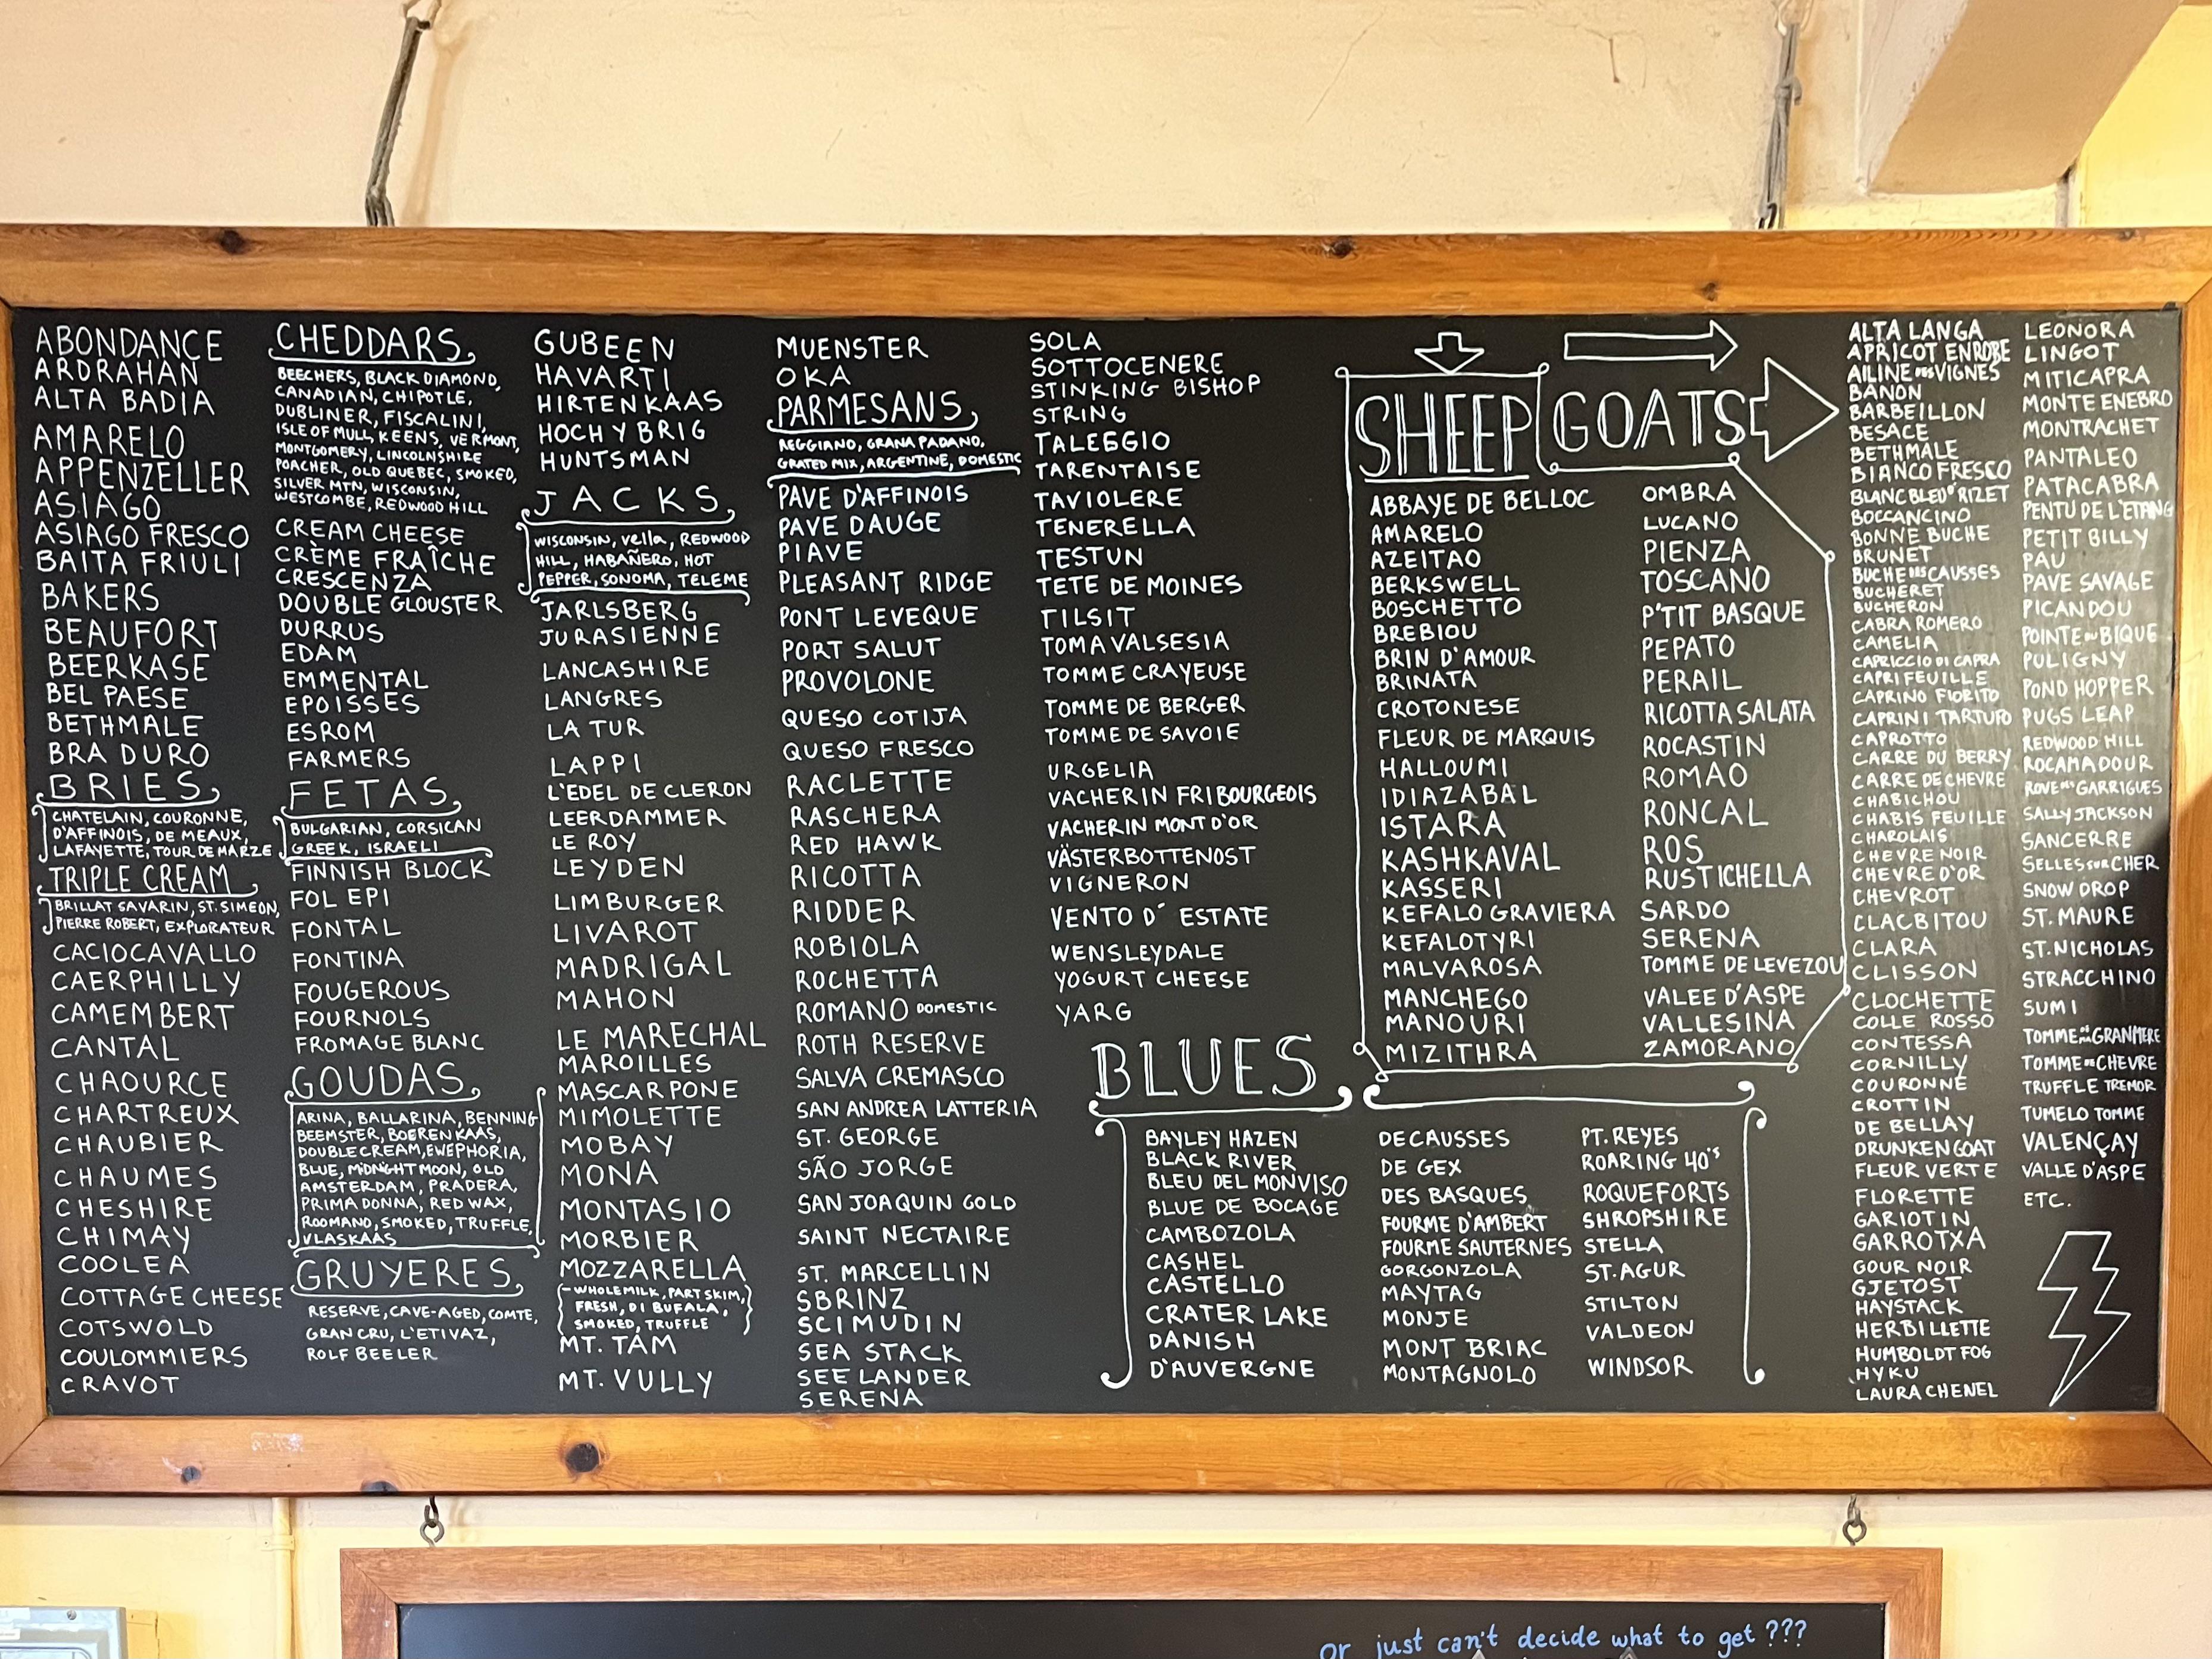 ABONDANCE
ARDRAHAN
ALTA BADIA
AMARELO
APPENZELLER
ASIAGO
ASIAGO FRESCO
BAITA FRIULI
BAKERS
BEAUFORT
BEERKASE
BEL PAESE
BETHMALE
BRA DURO
BRIES
CHATELAIN, COURONNE,
D'AFFINOIS, DE MEAUX,
LAFAYETTE, TOUR DE MARZE
TRIPLE CREAM
BRILLAT SAVARIN, ST. SIMEON,
PIERRE ROBERT, EXPLORATEUR
CACIOCAVALLO
CAERPHILLY
CAMEMBERT
CANTAL
CHAOURCE
CHARTREUX
CHAUBIER
CHAUMES
CHESHIRE
CHIMAY
COOLEA
COTTAGE CHEESE
COTSWOLD
COULOMMIERS
CRAVOT
CHEDDARS
BEECHERS, BLACK DIAMOND,
CANADIAN, CHIPOTLE,
DUBLINER, FISCALINI,
ISLE OF MULL, KEENS, VERMONT,
MONTGOMERY, LINCOLNSHIRE
POACHER, OLD QUEBEC, SMOKED,
SILVER MTN, WISCONSIN,
WESTCOMBE, REDWOOD HILL
CREAM CHEESE
CRÈME FRAÎCHE
CRESCENZA
DOUBLE GLOUSTER
DURRUS
EDAM
EMMENTAL
EPOISSES
ESROM
FARMERS
FETAS
BULGARIAN, CORSICAN
GREEK, ISRAELI
FINNISH BLOCK
FOL EPI
FONTAL
FONTINA
FOUGEROUS
FOURNOLS
FROMAGE BLANC
GOUDAS
ARINA, BALLARINA, BENNING
BEEMSTER, BOERENKAAS,
DOUBLE CREAM, EWEPHORIA,
BLUE, MIDNIGHT MOON, OLD
AMSTERDAM, PRADERA,
PRIMA DONNA, RED WAX,
ROOMANO, SMOKED, TRUFFLE,
VLASKAAS
GRUYERES
RESERVE, CAVE-AGED, COMTE,
GRAN CRU, L'ETIVAZ,
ROLF BEELER
GUBEEN
HAVARTI
HIRTENKAAS
HOCHYBRIG
HUNTSMAN
JACKS
WISCONSIN, vella, REDWOOD
HILL, HABAÑERO, HOT
PEPPER, SONOMA, TELEME
JARLSBERG
JURASIENNE
LANCASHIRE
LANGRES
LA TUR
LAPPI
L'EDEL DE CLERON
LEERDAMMER
LE ROY
LEYDEN
LIMBURGER
LIVAROT
MADRIGAL
MAHON
LE MARECHAL
MAROILLES
MASCARPONE
MIMOLETTE
MOBAY
MONA
MONTASIO
MORBIER
MOZZARELLA
-WHOLE MILK, PART SKIM,
FRESH, DI BUFALA,
SMOKED, TRUFFLE
MT. TAM
MT. VULLY
MUENSTER
OKA
PARMESANS
REGGIANO, GRANA PADANO,
GRATED MIX, ARGENTINE, DOMESTIC
PAVE D'AFFINOIS
PAVE DAUGE
PIAVE
PLEASANT RIDGE
PONT LEVEQUE
PORT SALUT
PROVOLONE
QUESO COTIJA
QUESO FRESCO
RACLETTE
RASCHERA
RED HAWK
RICOTTA
RIDDER
ROBIOLA
ROCHETTA
ROMANO DOMESTIC
ROTH RESERVE
SALVA CREMASCO
SAN ANDREA LATTERIA
ST. GEORGE
SÃO JORGE
SAN JOAQUIN GOLD
SAINT NECTAIRE
ST. MARCELLIN
SBRINZ
SCIMUDIN
SEA STACK
SEELANDER
SERENA
SOLA
SOTTOCENERE
STINKING BISHOP
STRING
TALEGGIO
TARENTAISE
TAVIOLERE
TENERELLA
TESTUN
TETE DE MOINES
TILSIT
TOMA VALSESIA
TOMME CRAYEUSE
TOMME DE BERGER
TOMME DE SAVOIE
URGELIA
VACHERIN FRIBOURGEOIS
VACHERIN MONT D'OR
VÄSTERBOTTENOST
VIGNERON
VENTO D' ESTATE
WENSLEYDALE
YOGURT CHEESE
YARG
BLUES
BAYLEY HAZEN
BLACK RIVER
BLEU DEL MONVISO
BLUE DE BOCAGE
CAMBOZOLA
CASHEL
CASTELLO
CRATER LAKE
DANISH
D'AUVERGNE
DECAUSSES
DE GEX
DES BASQUES
FOURME D'AMBERT
FOURME SAUTERNES
GORGONZOLA
MAYTAG
MONJE
MONT BRIAC
MONTAGNOLO
PT. REYES
ROARING 40's
ROQUEFORTS
SHROPSHIRE
STELLA
ST. AGUR
STILTON
VALDEON
WINDSOR
SHEEP
ABBAYE DE BELLOC
AMARELO
AZEITAO
BERKSWELL
BOSCHETTO
BREBIOU
BRIN D'AMOUR
BRINATA
CROTONESE
FLEUR DE MARQUIS
HALLOUMI
IDIAZABAL
ISTARA
KASHKAVAL
KASSERI
KEFALOGRAVIERA
KEFALOTYRI
MALVAROSA
MANCHEGO
MANOURI
MIZITHRA
OMBRA
LUCANO
PIENZA
TOSCANO
P'TIT BASQUE
PEPATO
PERAIL
RICOTTA SALATA
ROCASTIN
ROMAO
RONCAL
ROS
RUSTICHELLA
SARDO
SERENA
TOMME DE LEVEZOU
VALEE D'ASPE
VALLESINA
ZAMORANO
GOATS
ALTA LANGA
APRICOT ENROBE
AILINE DES VIGNES
BANON
BARBEILLON
BESACE
BETHMALE
BIANCO FRESCO
BLANC BLEU D'RIZET
BOCCANCINO
BONNE BUCHE
BRUNET
BUCHE DES CAUSSES
BUCHERET
BUCHERON
CABRA ROMERO
CAMELIA
CAPRICCIO DI CAPRA
CAPRIFEUILLE
CAPRINO FIORITO
CAPRINI TARTUFO
CAPROTTO
CARRE DU BERRY
CARRE DE CHEVRE
CHABICHOU
CHABIS FEUILLE
CHAROLAIS
CHEVRE NOIR
CHEVRE D'OR
CHEVROT
CLACBITOU
CLARA
CLISSON
CLOCHETTE
COLLE ROSSO
CONTESSA
CORNILLY
COURONNE
CROTTIN
DE BELLAY
DRUNKEN GOAT
FLEUR VERTE
FLORETTE
GARIOTIN
GARROTXA
GOUR NOIR
GJETOST
HAYSTACK
HERBILLETTE
HUMBOLDT FOG
HYKU
LAURA CHENEL
LEONORA
LINGOT
MITICAPRA
MONTE ENEBRO
MONTRACHET
PANTALEO
PATACABRA
PENTU DE L'ETANG
PETIT BILLY
PAU
PAVE SAVAGE
PICANDOU
POINTE DU BIQUE
PULIGNY
POND HOPPER
PUGS LEAP
REDWOOD HILL
ROCAMADOUR
ROVE DES GARRIGUES
SALLY JACKSON
SANCERRE
SELLES SUR CHER
SNOW DROP
ST. MAURE
ST. NICHOLAS
STRACCHINO
SUMI
TOMME DE MA GRANMERE
TOMME DE CHEVRE
TRUFFLE TREMOR
TUMELO TOMME
VALENÇAY
VALLE D'ASPE
ETC.
or just can't decide what to get ???